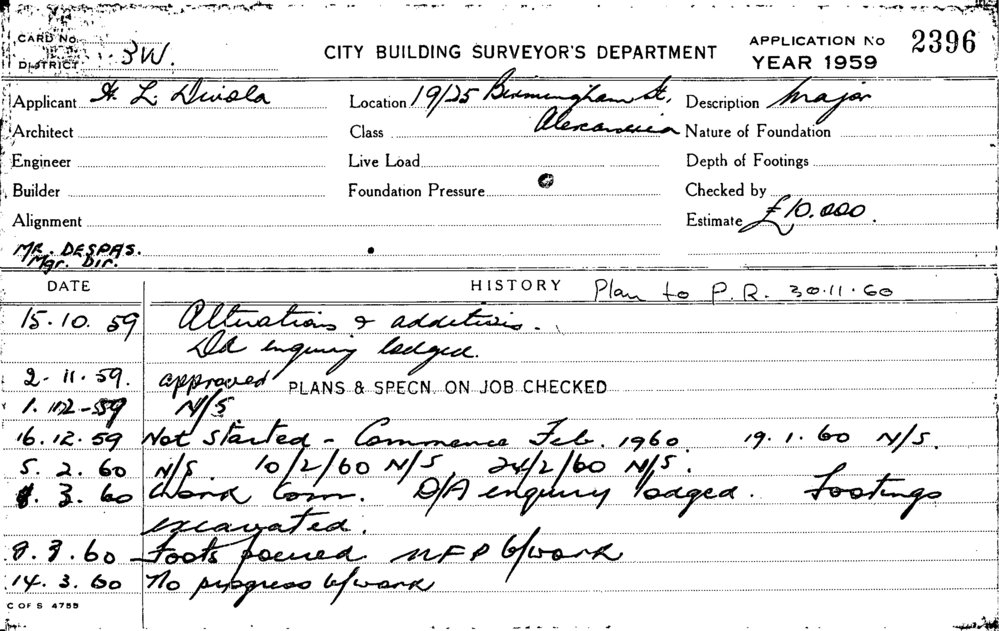 CARD No.
DISTRICT 3W.
CITY BUILDING SURVEYOR'S DEPARTMENT
APPLICATION No 2396
YEAR 1959
Applicant H. L. Divola Location 19/25 Birmingham St, Description Major
Alexandria
Architect Class Nature of Foundation
Engineer Live Load Depth of Footings
Builder Foundation Pressure Checked by
Alignment Estimate £10.000.
MR. DESPAS.
Mgr. Dir.
DATE HISTORY Plan to P.R. 30.11.60
15.10.59 Alterations & additions.
DA enquiry lodged.
2.11.59. approved PLANS & SPECN. ON JOB CHECKED
1.12-59 N/S
16.12.59 Not started - Commence Feb. 1960. 19.1.60 N/S.
5.2.60 N/S 10/2/60 N/S, 24/2/60 N/S.
3.60 Work Com. D/A enquiry lodged. Footings
excavated.
3.60 Foots poured NFP b/work
14.3.60 No progress b/work
C OF S 4755